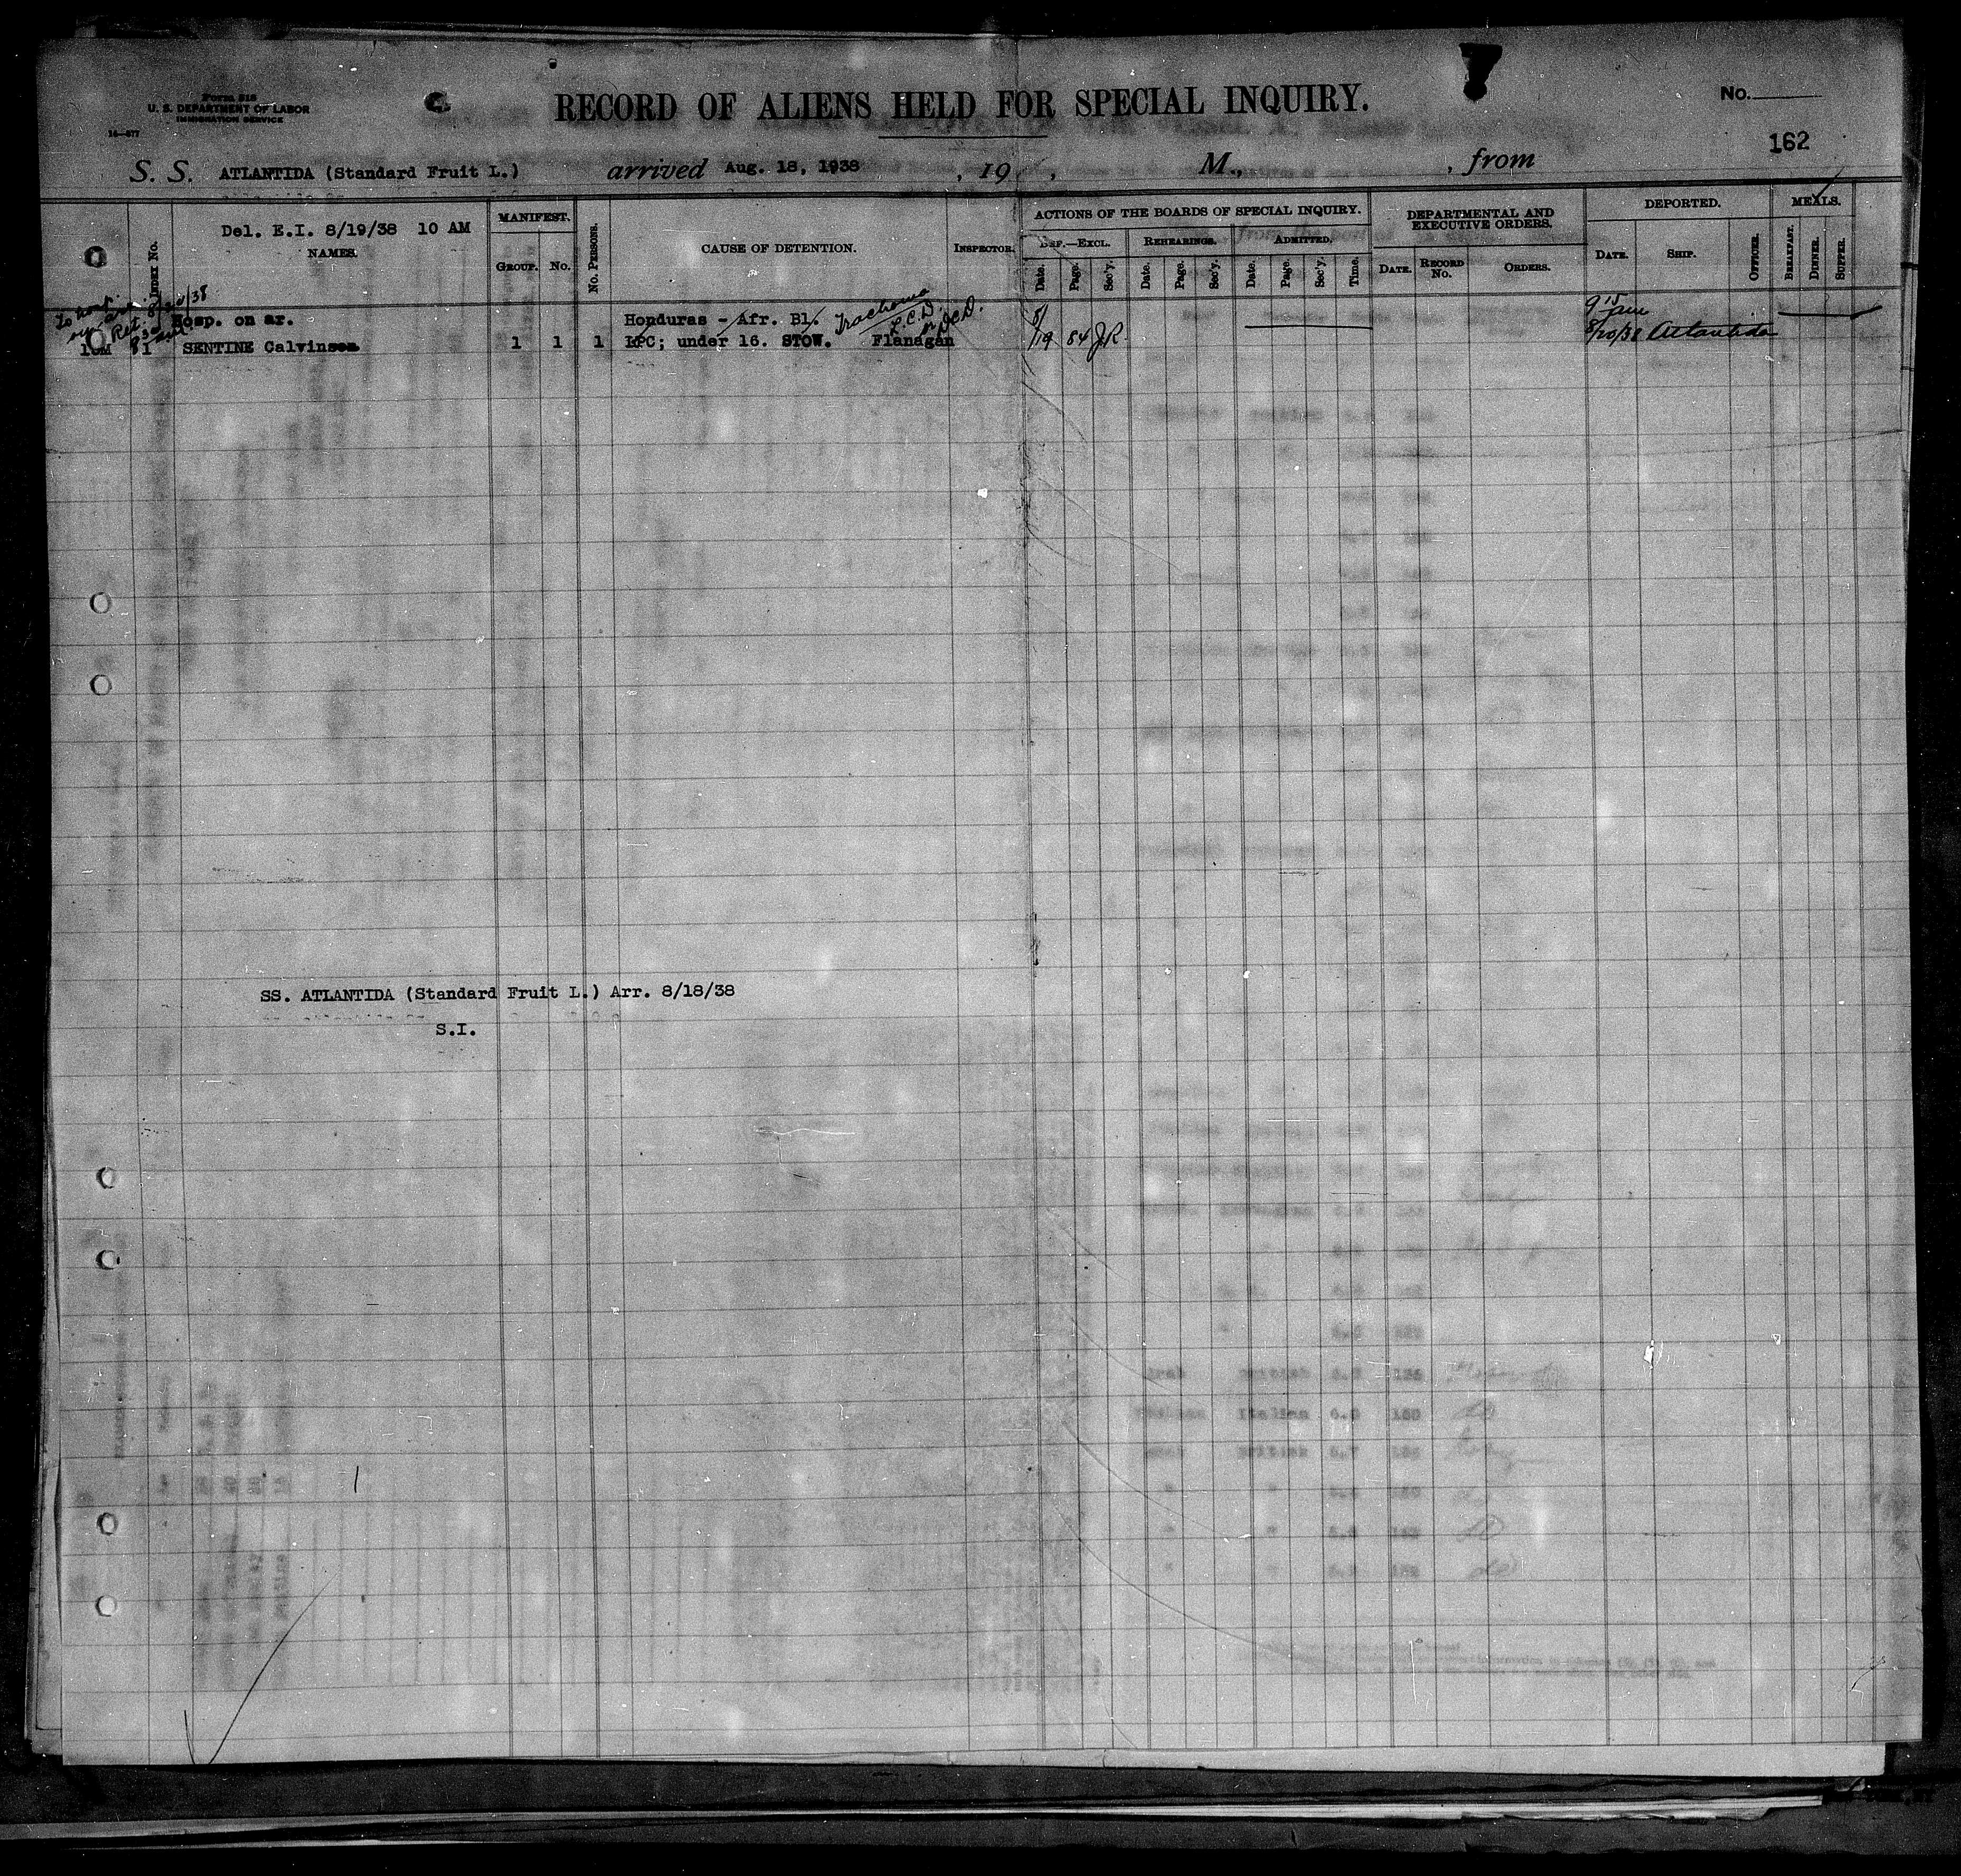 Form 518
U. S. DEPARTMENT OF LABOR
IMMIGRATION SERVICE
16—877
RECORD OF ALIENS HELD FOR SPECIAL INQUIRY.
No.
162
S. S. ATLANTIDA (Standard Fruit L.) arrived Aug. 18, 1938 , 19 , M., , from
Del. E.I. 8/19/38 10 AM
INDEX No.
NAMES.
MANIFEST.
GROUP. No.
No. PERSONS.
CAUSE OF DETENTION.
INSPECTOR.
ACTIONS OF THE BOARDS OF SPECIAL INQUIRY.
DEF.—EXCL. REHEARINGS. ADMITTED.
Date. Page. Sec'y. Date. Page. Sec'y. Date. Page. Sec'y. Time.
DEPARTMENTAL AND
EXECUTIVE ORDERS.
DATE. RECORD No. ORDERS.
DEPORTED.
DATE. SHIP. OFFICER.
MEALS.
BREAKFAST. DINNER. SUPPER.
To hosp.
on ar.
Ret. 8/20/38
8 30 am
Hosp. on ar. Honduras - Afr. Bl. Trachoma L.C.D. 8/ 9 15 am
1 SENTINE Calvinson 1 1 1 LPC; under 16. STOW. Flanagan /19 84 J.R. 8/20/38 Atlantida
SS. ATLANTIDA (Standard Fruit L.) Arr. 8/18/38
S.I.